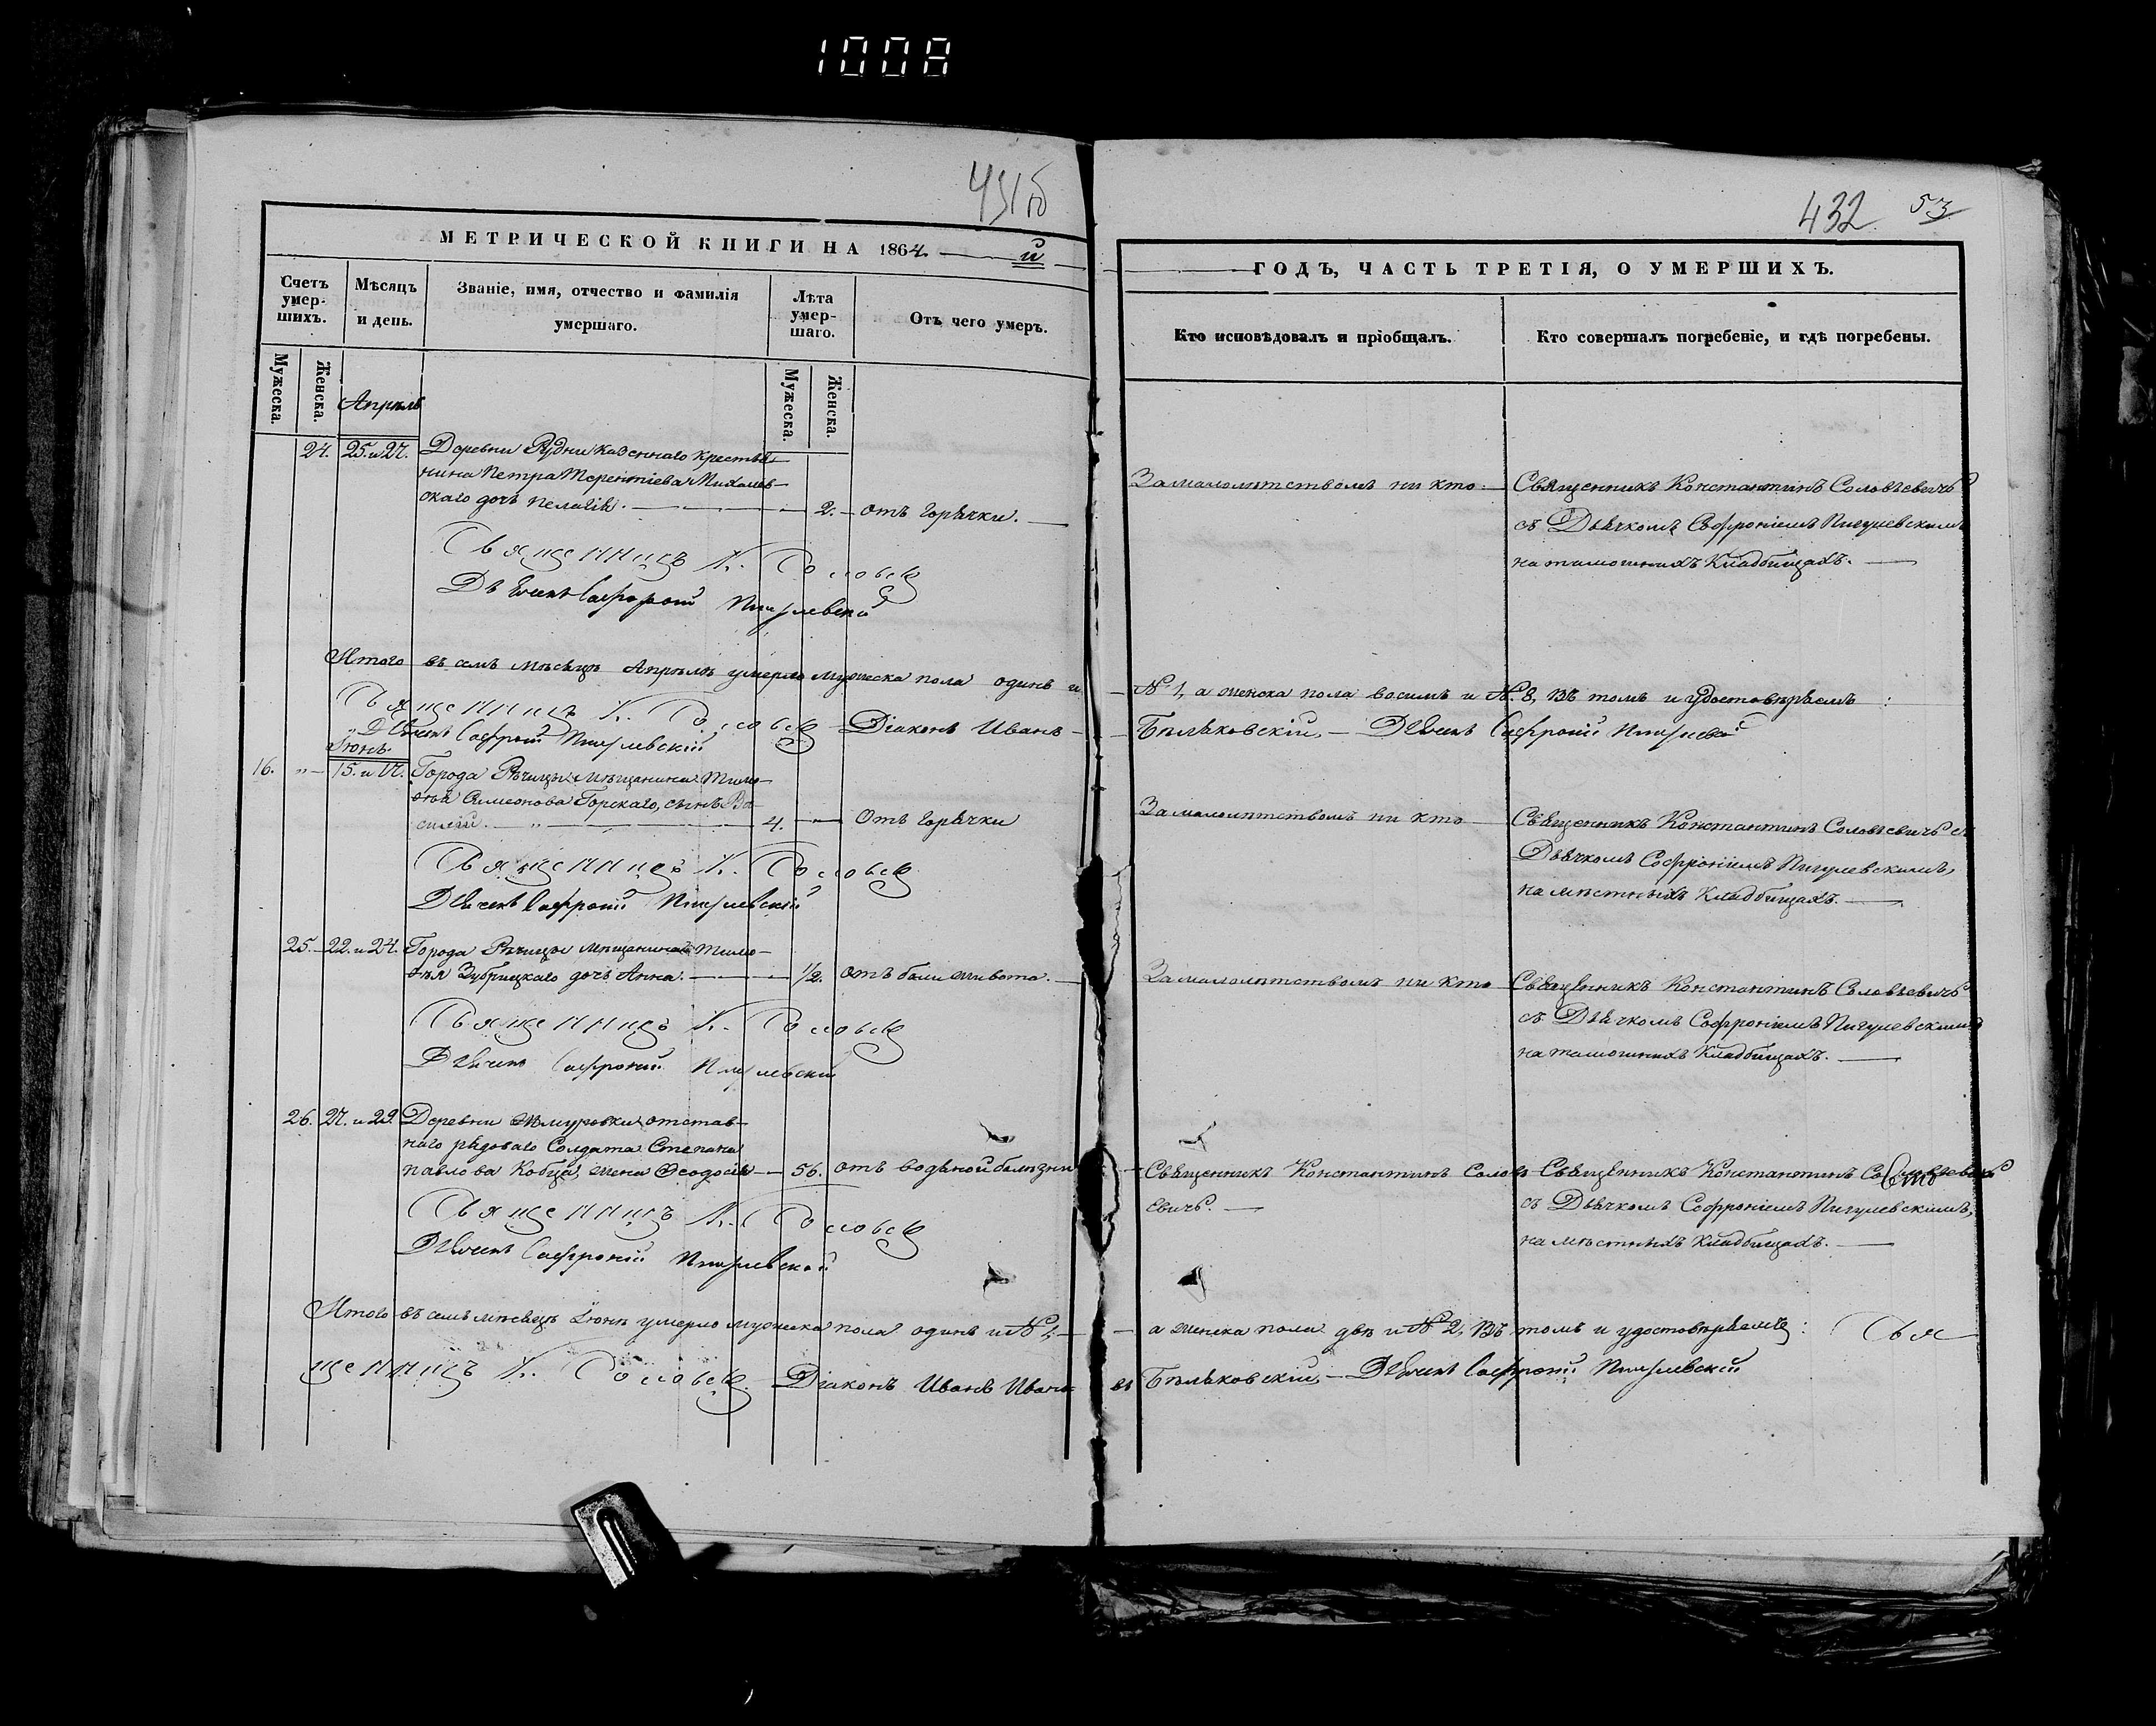 1008
431 б
МЕТРИЧЕСКОЙ КНИГИ НА 1864. й
Счетъ умер-шихъ.
Мѣсяцъ и день.
Званіе, имя, отчество и фамилія умершаго.
Лѣта умер-шаго.
Отъ чего умеръ.
Мужеска.
Женска.
Мужеска.
Женска.
Апрѣль
24. 25. и 27. Деревни Рудни казеннаго крестья-
нина Петра Терентіева Михалев-
скаго дочь Пелагія. 2. отъ горячки.
Священникъ К. Соловьев
Дьячекъ Софроній Пигулевскій
Итого въ семъ мѣсяцѣ Апрѣлѣ умерло мужеска пола одинъ и
Священникъ К. Соловьев Діаконъ Иванъ
Дьячекъ Софроній Пигулевскій
Іюнь.
16. „ 15. и 17. Города Рѣчицы мѣщанина Тимо-
ѳея Симеонова Горскаго, сынъ Ва-
силій. „ 4. „ Отъ горячки
Священникъ К. Соловьев
Дьячекъ Софроній Пигулевскій
25. 22. и 24. Города Рѣчицы мѣщанина Тимо-
ѳея Зубрицкаго дочь Анна. 1/2. отъ боли живота.
Священникъ К. Соловьев
Дьячекъ Софроній Пигулевскій
26. 27. и 29. Деревни Жмуровки отстав-
наго рядоваго Солдата Степана
Павлова Кобца, жена Ѳеодосія 56. отъ водяной болезни
Священникъ К. Соловьев
Дьячекъ Софроній Пигулевской
Итого въ семъ мѣсяцѣ Іюнѣ умерло мужеска пола одинъ и № 1,
щенникъ К. Соловьев Діаконъ Иванъ Ивано-
432. 53
ГОДЪ, ЧАСТЬ ТРЕТІЯ, О УМЕРШИХЪ.
Кто исповѣдовалъ и пріобщалъ.
Кто совершалъ погребеніе, и гдѣ погребены.
За малолѣтствомъ ни кто. Священникъ Константинъ Соловьевичъ
съ Дьячкомъ Софроніемъ Пигулевскимъ
на тамошнихъ Кладбищахъ.
№ 1, а женска пола восимъ и № 8, Въ томъ и удостовѣряемъ :
Бѣльковскій, Дьячекъ Софроній Пигулевскій
За малолѣтствомъ ни кто Священникъ Константинъ Соловьевичъ съ
Дьячкомъ Софроніемъ Пигулевскимъ,
на мѣстныхъ Кладбищахъ.
За малолѣтствомъ ни кто Священникъ Константинъ Соловьевичъ
съ Дьячкомъ Софроніемъ Пигулевскимъ
на тамошнихъ Кладбищахъ.
Священникъ Константинъ Соловь- Священникъ Константинъ Соловьевичъ
евичъ. съ Дьячкомъ Софроніемъ Пигулевскимъ,
на мѣстныхъ Кладбищахъ.
а женска пола двѣ и № 2, Въ томъ и удостовѣряемъ : Свя
въ Бѣльковскій, Дьячекъ Софроній Пигулевскій